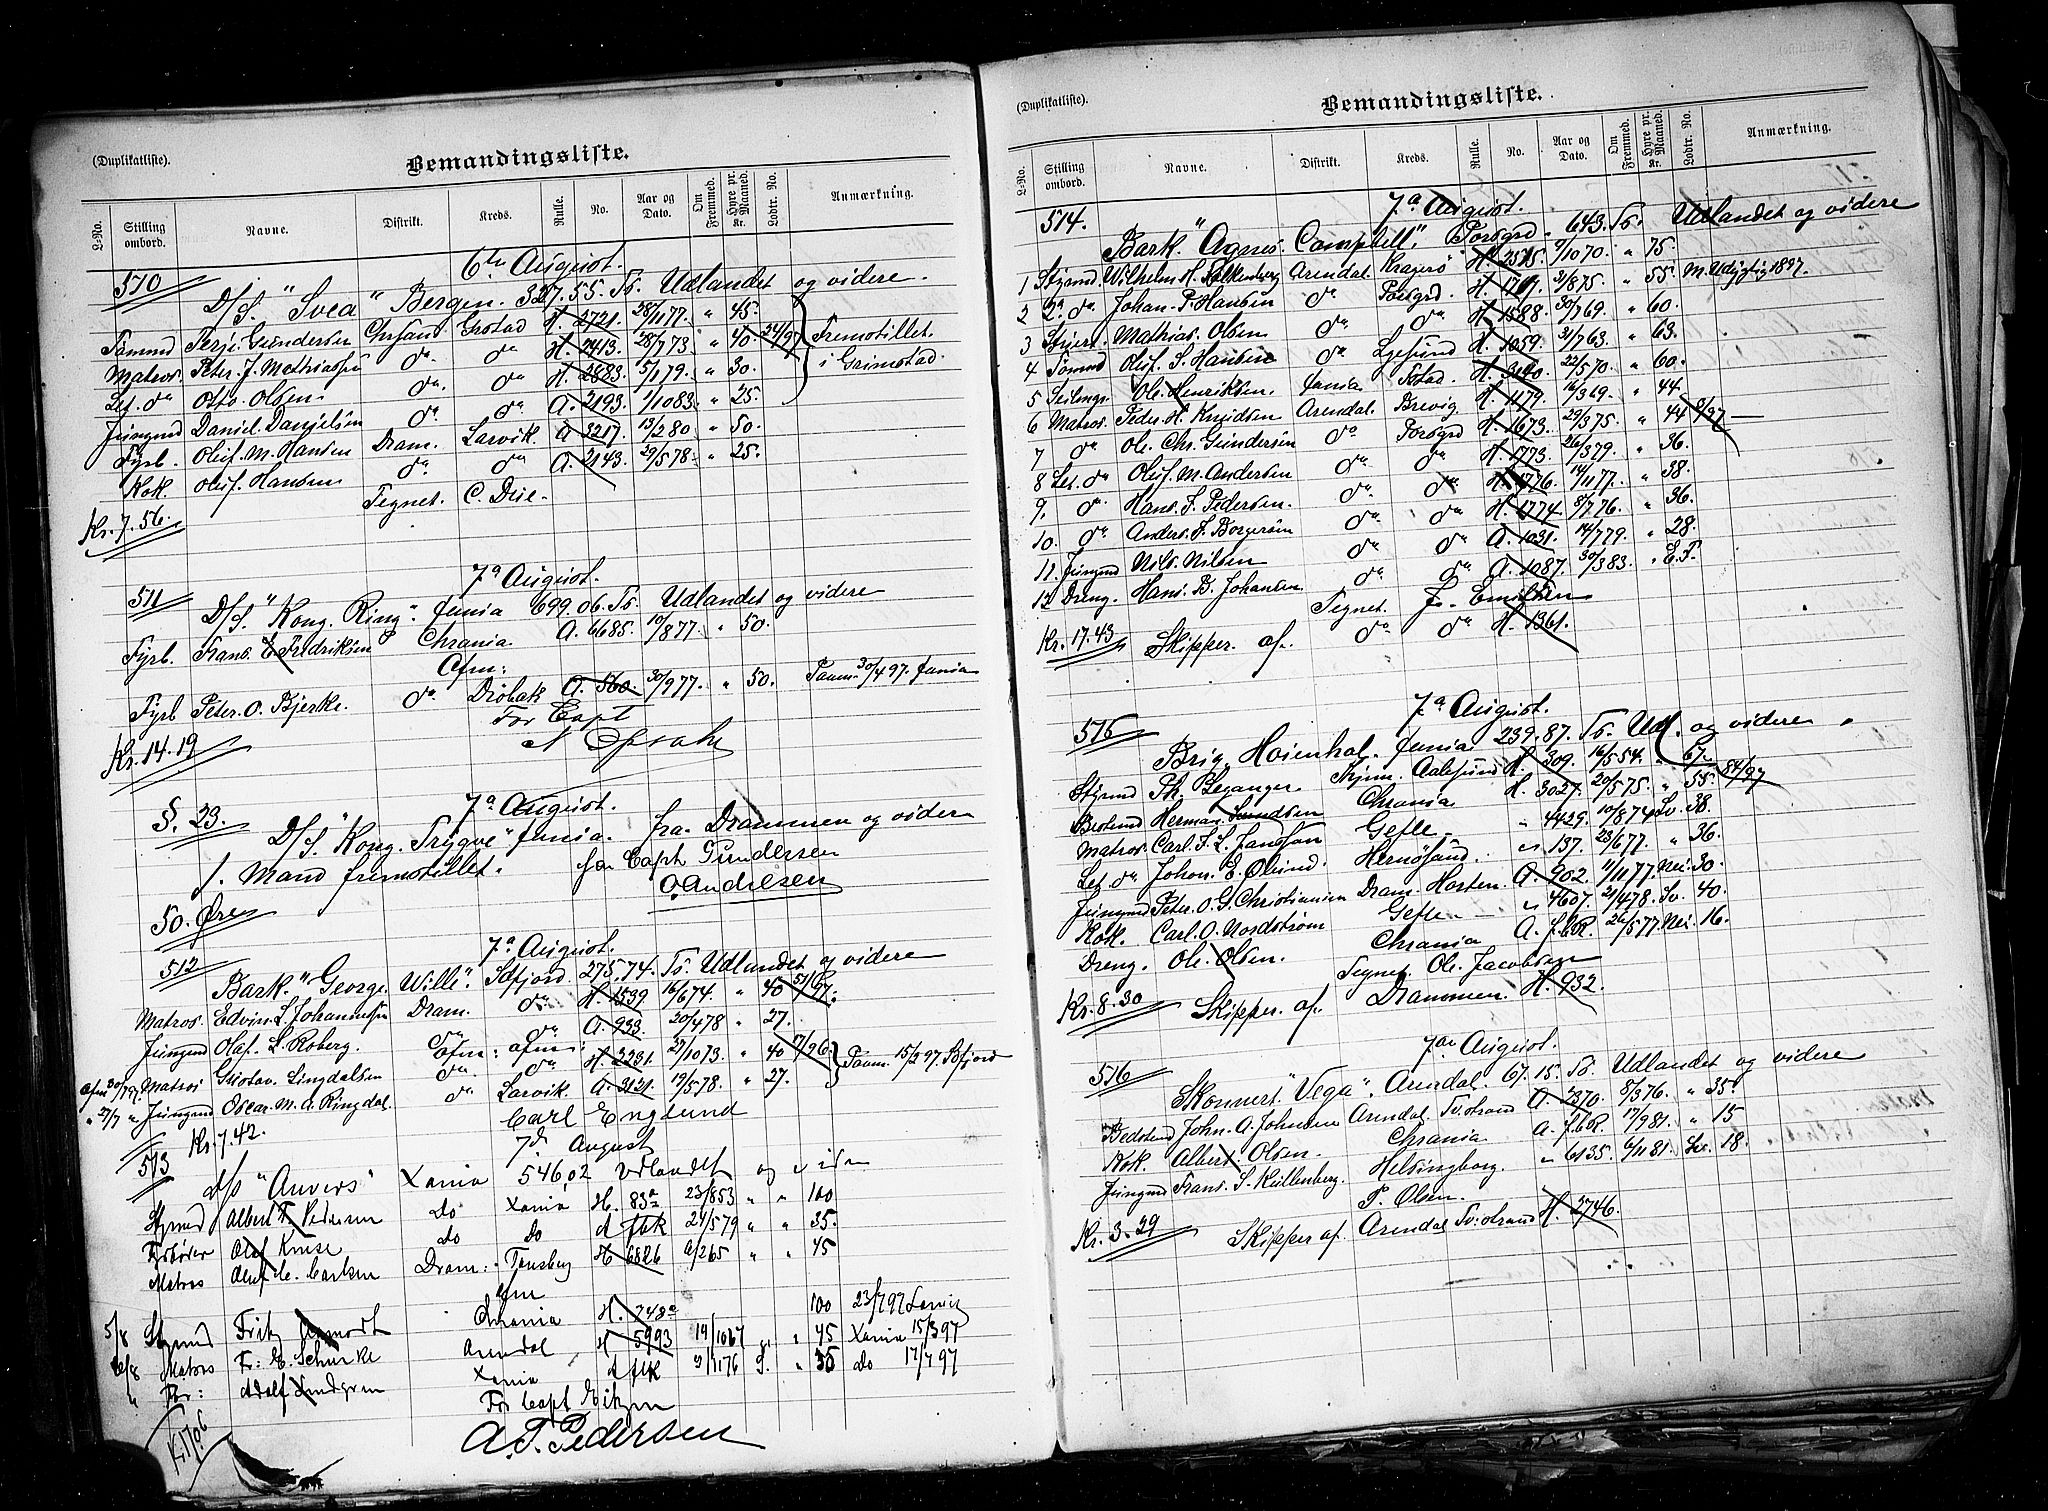 (Duplikatliste).
Bemandingsliste.
L-No. Stilling ombord. Navne. Distrikt. Kreds. Rulle. No. Aar og Dato. Om Fremmed. Hyre pr. Maaned. Kr. Lodtr. No. Anmærkning.
6te August.
510
D/S. "Svea" Bergen. 327.55. To. Udlandet og videre.
Tømmd Terje Gundersen Chrsand Grstad H. 2721. 28/1177. " 45.
Matros. Peter. J. Mathiassen do do H. 2413. 28/773. " 40. 24/97 Fremstillet
Let. do Otto. Olsen do. do H. 2883. 5/179. " 30. i Grimstad.
Jungmd Daniel. Danielsen do do A. 2193. 1/1083. " 25.
Fyrb. Oluf. M. Hansen Dram. Larvik. A. 3217. 13/280. " 50.
Kok. Oluf. Hansen do. do A. 2143. 29/578. " 25.
Tegnet. C. Due.
Kr. 7.56.
7de August.
511
D/S. "Kong. Ring". Xania 699.06. To. Udlandet og videre
Fyrb. Frans. E Fredriksen Chrania. A. 6685. 10/877. " 50.
Afm:
Fyrb Peter. O. Bjerke. do Drøbak A. 560. 30/977. " 50. Paam. 30/4 97. Xania
For Capt
Kr. 14.19
7de August.
§. 23.
D/S. "Kong. Trygve" Xania. fra Drammen og videre
1. Mand fremstillet. for Capt Gundersen
O Andresen
50. Øre
7de August.
512
Bark. "George. Wille". Sdfjord. 275.74. To. Udlandet og videre
Matros. Edvin. L. Johannesen Dram. do H. 1539 16/674. " 40 51/97.
Jungmd Olaf. L. Roberg. do do A. 933. 20/478 " 27.
afm: afm:
Afm 30/7 97. Matros Gustav. Lingdalsen do do H. 2231. 22/1073. " 40 17/96. Paam. 15/2 97 Sdfjord
" 27/7 " Jungmd Oscar. M. A. Ringdal. do Larvik. A. 3121. 19/578. " 27.
Kr. 7.42. Carl Englund
7de August
513
D/S "Anvers" Xania 546,02 Udlandet og viden
Stymd Albert F. Pedersen do Xania H. 83a 23/853 " " 100
Fyrbøter Olaf Kruse do do A fbk 24/579 " " 35.
Matros Oluf C. Carlsen Dram: Tønsberg H 6826 9/265 " " 45
Afm
5/8 Stymd Fritz Chrania H. 748a 100 23/7 97 Larvig
26/8 Matros Fr: E. Schurke Arendal H 5993 14/1067 " 45 Xania 15/3 97
" Fbr: Adolf Lindgren Xania A fbk 9/1176 S. " 35 do 17/7 97
For Capt Eitzen
A. F. Pedersen
(Duplikatliste).
Bemandingsliste.
L-No. Stilling ombord. Navne. Distrikt. Kreds. Rulle. No. Aar og Dato. Om Fremmed. Hyre pr. Maaned. Kr. Lodtr. No. Anmærkning.
7de August.
514.
Bark. "Agnes. Campbell". Porsgrd. 643. To. Udlandet og videre
1 Stymd. Wilhelm. H. Falkenberg Arendal Kragerø H. 2575. 9/1070. " 75.
2 2. do. Johan. P. Hansen do Porsgrd. H. 1701. 21/875. " 55. M. Udygtig 1897.
3 Stuert. Mathias. Olsen do do H. 1588. 30/769. " 60.
4 Tømmd Oluf. S. Hansen do Lgesund H. 1059. 31/763. " 63.
5 Seilmgr. Ole. Henriksen. Xania Fstad. H. 3040. 22/570. " 60.
6 Matros. Peder. H. Knudsen Arendal. Brevig. H. 1179. 16/369. " 44.
7 do Ole. Chr. Gundersen do Porsgrd H. 1673. 29/375. " 44 9/97
8 Let. do Oluf. M. Andersen do do H. 1773. 26/379. " 36.
9. do. Hans. F. Pedersen. do do H. 1776. 14/1177. " 38.
10. do Anders. F. Borgersen do do H. 1774. 8/776. " 36.
11. Jungmd Nils. Nilsen do do A. 1031. 14/779. " 28.
12 Dreng. Hans. B. Johansen do do A. 1087. 30/383. " E.F.
Tegnet. J. Emilsen
Kr. 17.43 Skipper. af. do do H. 1361.
7de August.
516
Brig. Høienhal. Xania 239.87. To. Udl. og videre.
Stymd Th. Beganger. Thjem. Aalesund H. 309. 16/554. " 67. 84/97
Bestmd Herman. Sundsen Chrania H. 3027. 20/575. " 55.
Matros Carl. F. L. Jansson Gefle " 4429. 10/874 Sv. 38.
Let do Johan. E. Ølund. Hernøsand. " 137. 23/677. " 36.
Jungmd Peter. O. G. Christiansen Dram. Horten. A. 902. 11/1177 Nei. 30.
Kok. Carl. O. Nordstrøm Gefle " 4607. 21/478. Sv. 40.
Dreng. Ole. Olsen. Chrania A. f.b.R. 26/577 Nei. 16.
Tegnet Ole. Jacobsen
Kr. 8.30 Skipper af. Drammen. H. 932.
7de August.
516
Skonnert "Vega". Arendal. 67.15. To. Udlandet og videre
Bedstmd John. A. Johnsen Arendal Tv:strand A. 2370. 8/376. " 35.
Kok. Albert. Olsen. Chrania A. f.b.R. 17/981. " 15
Jungmd Frans. S. Kullenberg. Helsingborg. " 6135. 6/1181. Sv. 18.
P. Olsen.
Kr. 3.29 Skipper af. Arendal Tv:strand H. 2746.